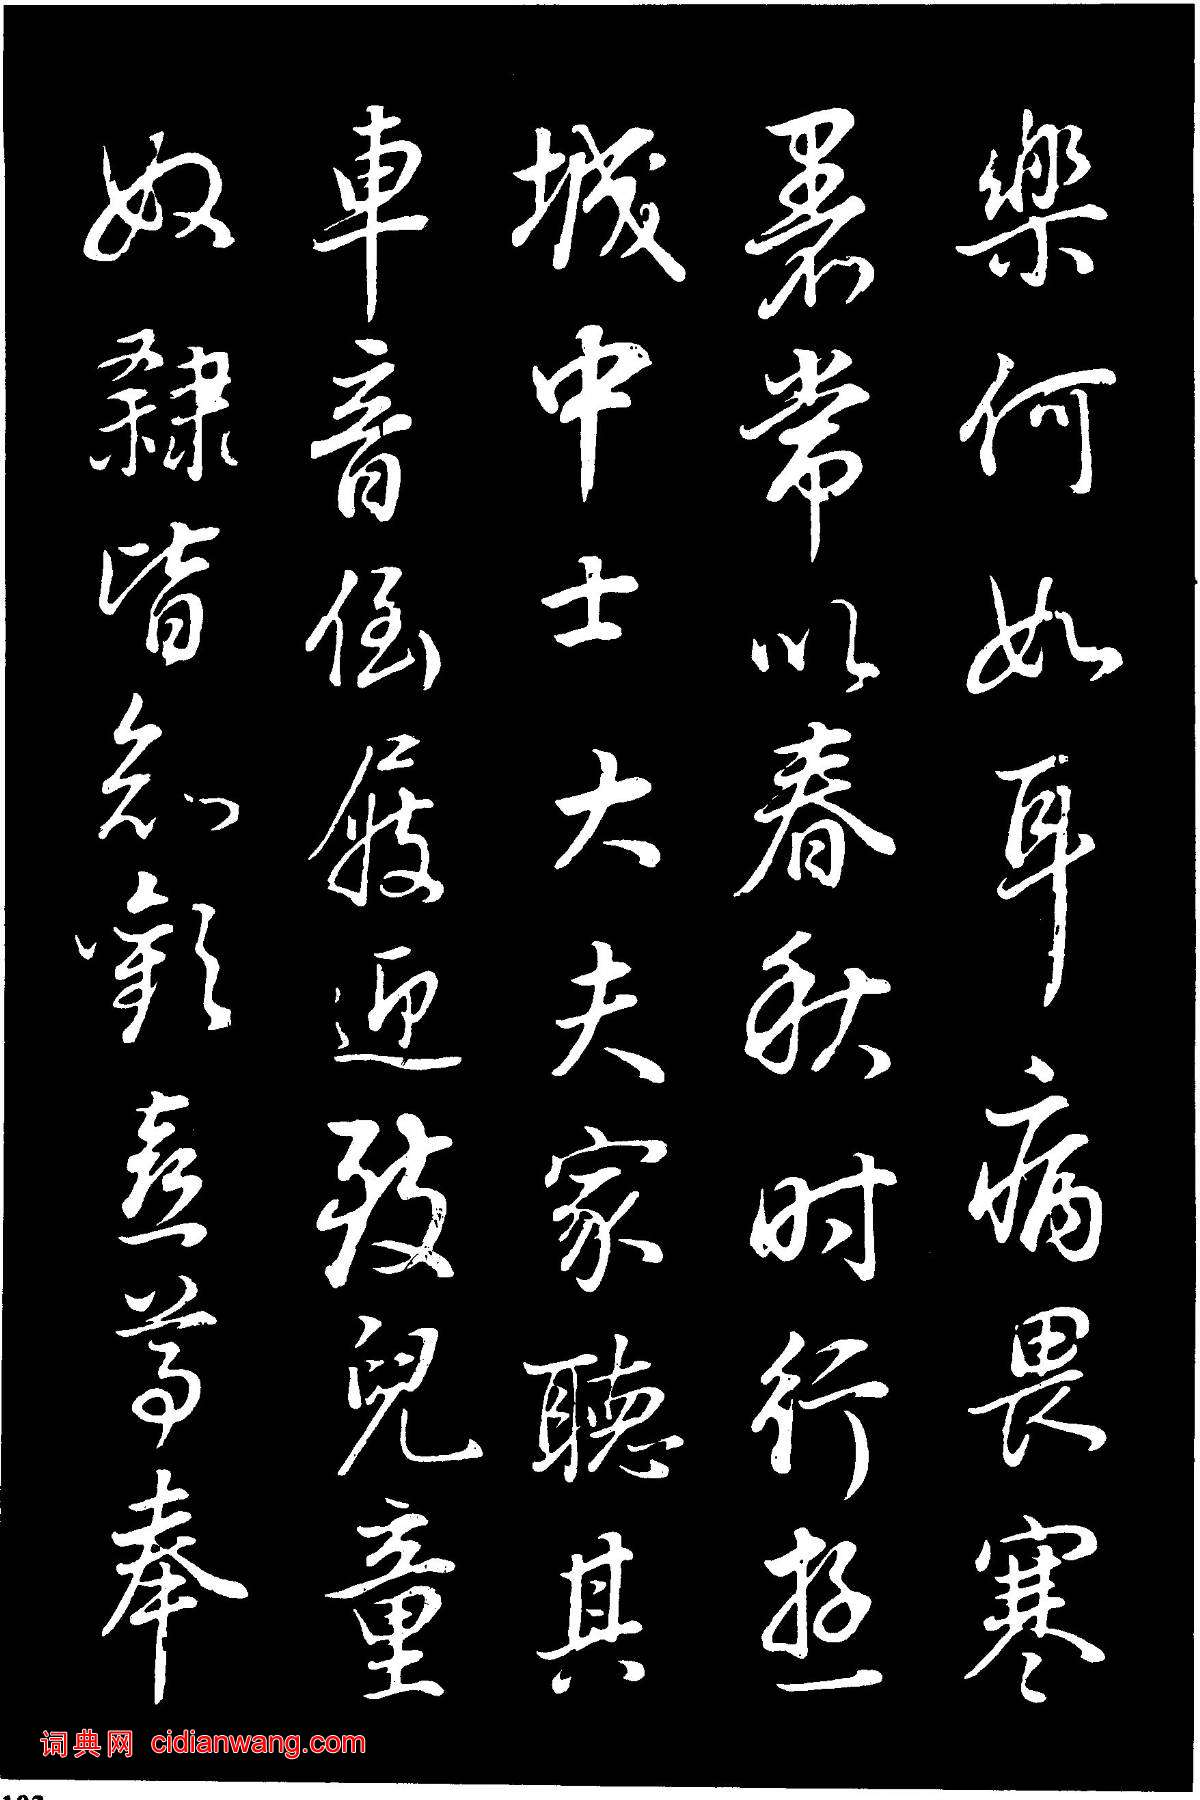 樂何如耳病畏寒
暑常以春秋时行遊
城中士大夫家聽其
車音倒屐迎致兒童
奴隸皆知歡喜尊奉
词典网 cidianwang.com